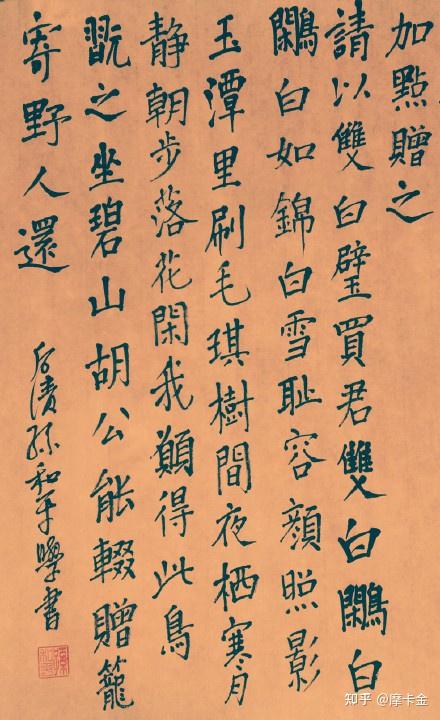 加點贈之
請以雙白璧買君雙白鷴白
鷴白如錦白雪恥容顔照影
玉潭里刷毛琪樹間夜栖寒月
静朝步落花閑我願得此鳥
翫之坐碧山胡公能輟贈籠
寄野人還
孫和平學書
知乎 @摩卡金